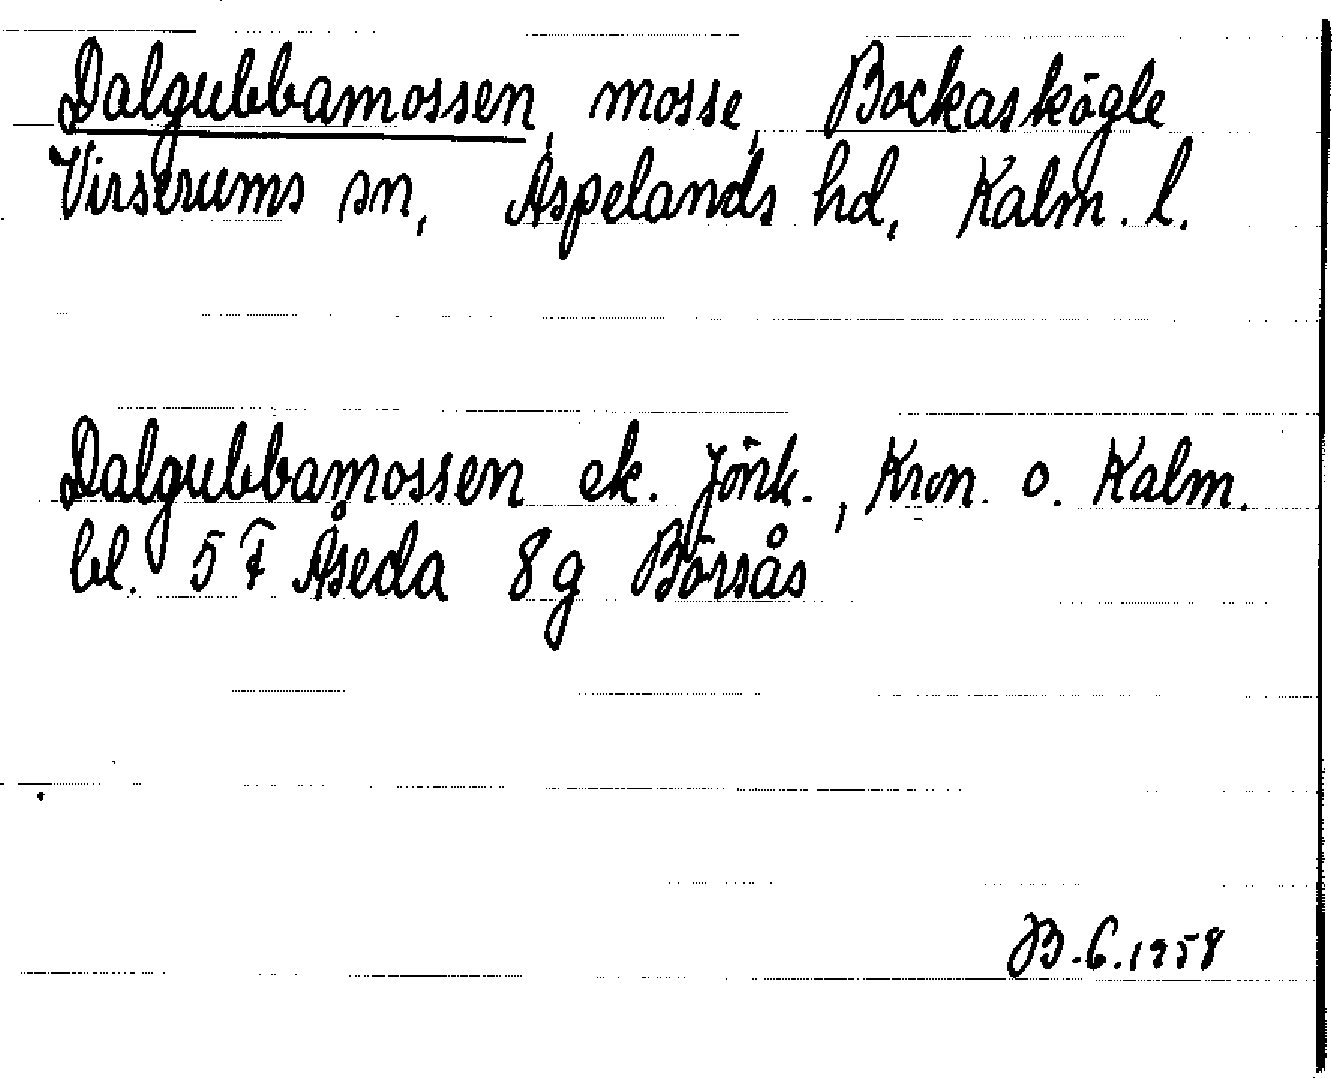 Dalgubbamossen, mosse, Bockaskögle
Virserums sn, Aspelands hd, Kalm. l.
Dalgubbamossen ek. Jönk., Kron. o. Kalm.
bl. 5 F Åseda 8g Börsås
B.G. 1958